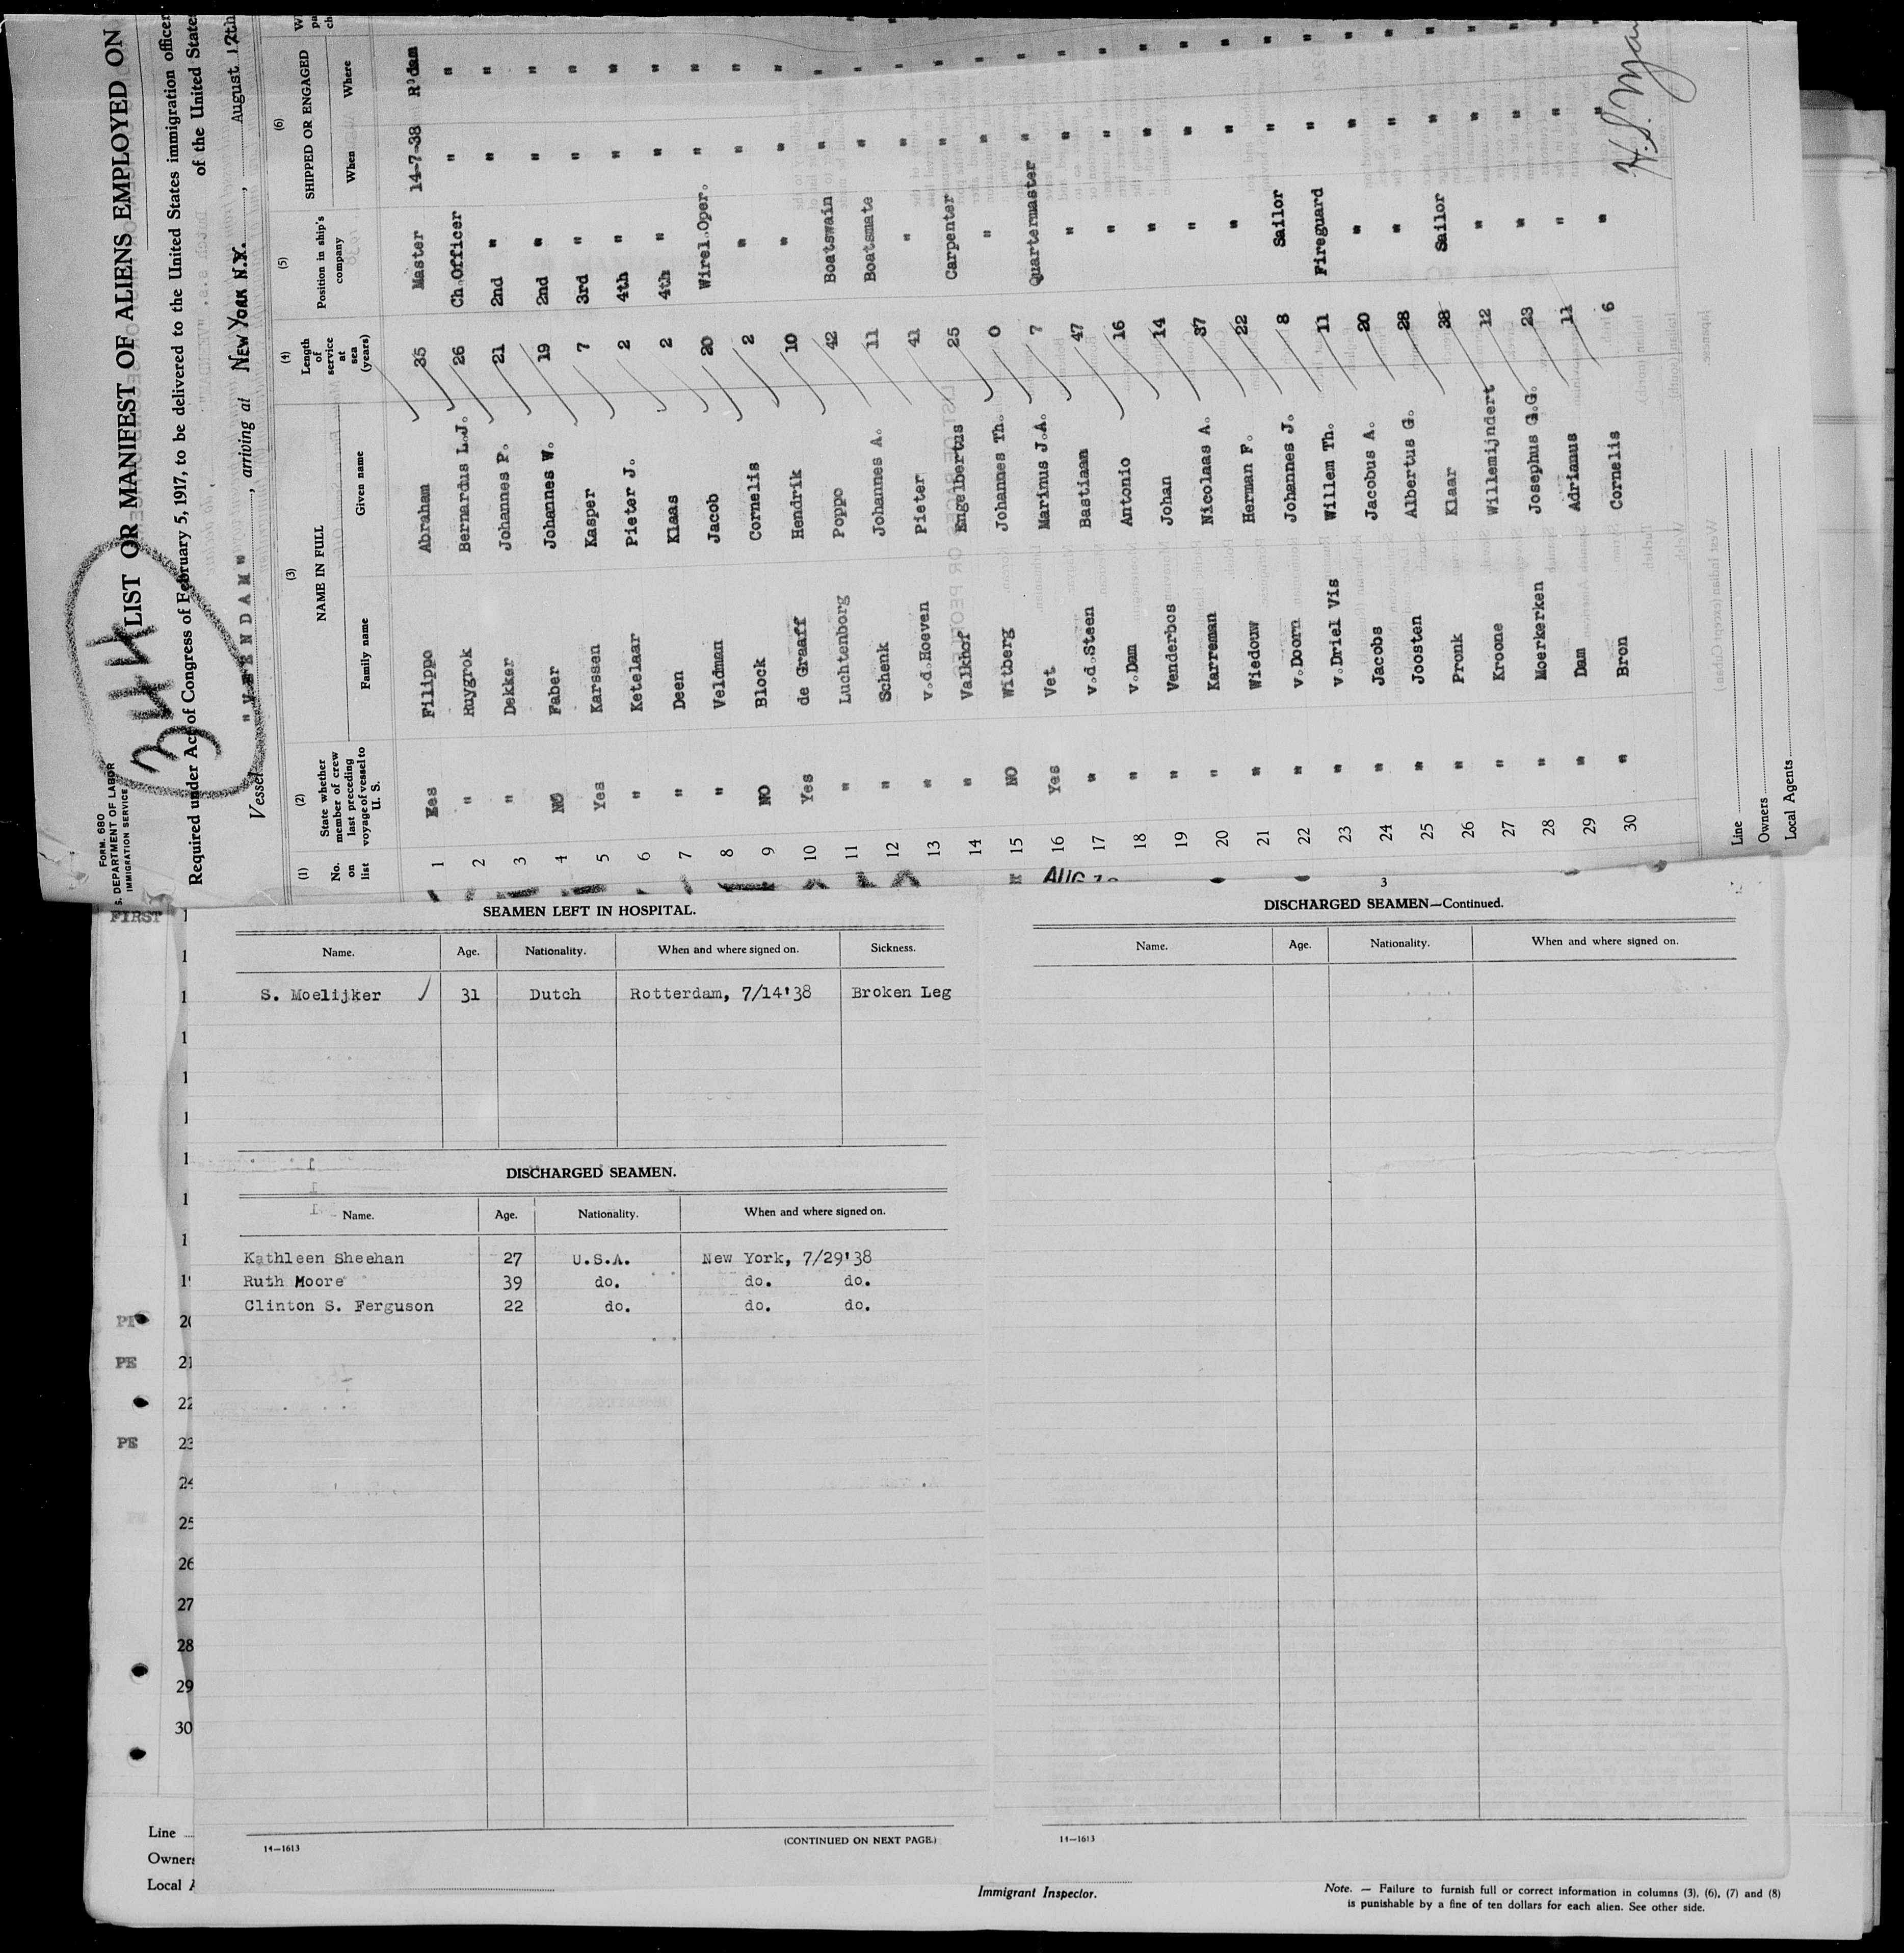 FORM. 680
S. DEPARTMENT OF LABOR
IMMIGRATION SERVICE
344
LIST OR MANIFEST OF ALIENS EMPLOYED ON
Required under Act of Congress of February 5, 1917, to be delivered to the United States immigration officer
of the United States
Vessel "VEENDAM", arriving at NEW YORK N.Y., August 17th
(1) (2) (3) (4) (5) (6)
No. on list State whether member of crew on last preceding voyage of vessel to U. S. NAME IN FULL Length of service at sea (years) Position in ship's company SHIPPED OR ENGAGED
Family name Given name When Where
1 Yes Filippo Abraham 35 Master 14-7-38 R'dam
2 " Ruygrok Bernardus L.J. 26 Ch.Officer " "
3 " Dekker Johannes P. 21 2nd " " "
4 NO Faber Johannes W. 19 2nd " " "
5 Yes Karssen Kasper 7 3rd " " "
6 " Ketelaar Pieter J. 2 4th " " "
7 " Deen Klaas 2 4th " " "
8 " Veldman Jacob 20 Wirel.Oper. " "
9 NO Block Cornelis 2 " " "
10 Yes de Graaff Hendrik 10 " " "
11 " Luchtenborg Poppo 42 Boatswain " "
12 " Schenk Johannes A. 11 Boatsmate " "
13 " v.d.Hoeven Pieter 41 " " "
14 " Valkhof Engelbertus 25 Carpenter " "
15 NO Witberg Johannes Th. 0 " " "
16 Yes Vet Marinus J.A. 7 Quartermaster " "
17 " v.d.Steen Bastiaan 47 " " "
18 " v.Dam Antonio 16 " " "
19 " Venderbos Johan 14 " " "
20 " Karreman Nicolaas A. 37 " " "
21 " Wiedouw Herman F. 22 " " "
22 " v.Doorn Johannes J. 8 Sailor " "
23 " v.Driel Vis Willem Th. 11 Fireguard " "
24 " Jacobs Jacobus A. 20 " " "
25 " Joosten Albertus G. 28 " " "
26 " Pronk Klaar 38 Sailor " "
27 " Kroone Willemijndert 12 " " "
28 " Moerkerken Josephus G.G. 23 " " "
29 " Dam Adrianus 11 " " "
30 " Bron Cornelis 6 " " "
Line
Owners
Local Agents
AUG
FIRST
SEAMEN LEFT IN HOSPITAL.
Name. Age. Nationality. When and where signed on. Sickness.
S. Moelijker 31 Dutch Rotterdam, 7/14'38 Broken Leg
DISCHARGED SEAMEN.
Name. Age. Nationality. When and where signed on.
Kathleen Sheehan 27 U.S.A. New York, 7/29'38
Ruth Moore 39 do. do. do.
Clinton S. Ferguson 22 do. do. do.
14—1613 (CONTINUED ON NEXT PAGE.)
3
DISCHARGED SEAMEN—Continued.
Name. Age. Nationality. When and where signed on.
14—1613
PE
PE
21
22
24
25
26
27
28
29
30
Line
Owners
Local A
Immigrant Inspector.
Note. — Failure to furnish full or correct information in columns (3), (6), (7) and (8)
is punishable by a fine of ten dollars for each alien. See other side.